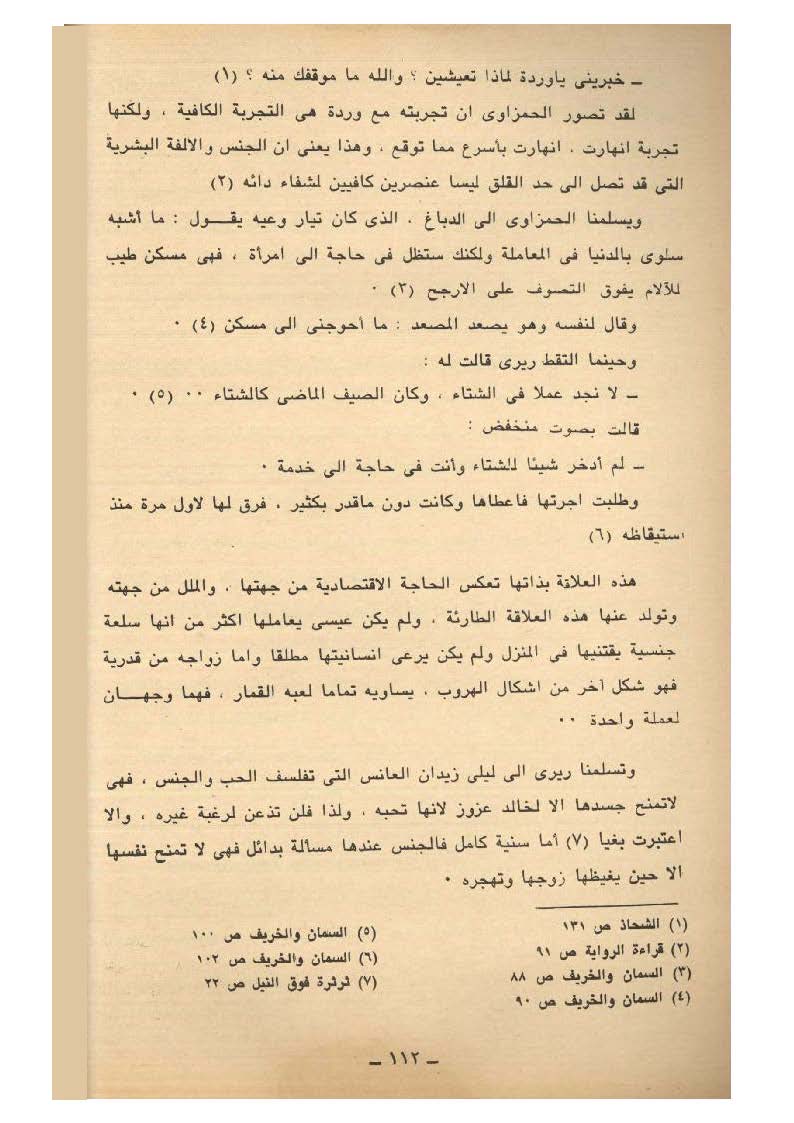 ـ خبريني ياوردة لماذا تعيشين ؟ والله ما موقفك منه ؟ (١)
لقد تصور الحمزاوى ان تجربته مع وردة هى التجربة الكافية ، ولكنها
تجربة انهارت ، انهارت بأسرع مما توقع ، وهذا يعنى ان الجنس والالفة البشرية
التى قد تصل الى حد القلق ليسا عنصرين كافيين لشفاء دائه (٢)
ويسلمنا الحمزاوى الى الدباغ ، الذى كان تيار وعيه يقـــول : ما أشبه
سلوى بالدنيا فى المعاملة ولكنك ستظل فى حاجة الى امرأة ، فهى مسكن طيب
للآلام يفوق التصوف على الارجح (٣) ٠
وقال لنفسه وهو يصعد المصعد : ما أحوجنى الى مسكن (٤) ٠
وحينما التقط ريرى قالت له :
ـ لا نجد عملا فى الشتاء ، وكان الصيف الماضى كالشتاء ٠٠ (٥) ٠
قالت بصوت منخفض :
ـ لم أدخر شيئا للشتاء وأنت فى حاجة الى خدمة ٠
وطلبت اجرتها فاعطاها وكانت دون ماقدر بكثير ، فرق لها لاول مرة منذ
استيقاظه (٦)
هذه العلاقة بذاتها تعكس الحاجة الاقتصادية من جهتها ، والملل من جهته
وتولد عنها هذه العلاقة الطارئة ، ولم يكن عيسى يعاملها اكثر من انها سلعة
جنسية يقتنيها فى المنزل ولم يكن يرعى انسانيتها مطلقا واما زواجه من قدرية
فهو شكل آخر من اشكال الهروب ، يساويه تماما لعبه القمار ، فهما وجهـــان
لعملة واحدة ٠٠
وتسلمنا ريرى الى ليلى زيدان العانس التى تفلسف الحب والجنس ، فهى
لاتمنح جسدها الا لخالد عزوز لانها تحبه ، ولذا فلن تذعن لرغبة غيره ، والا
اعتبرت بغيا (٧) أما سنية كامل فالجنس عندها مسألة بدائل فهى لا تمنح نفسها
الا حين يغيظها زوجها وتهجره ٠
(١) الشحاذ ص ١٣١
(٢) قراءة الرواية ص ٩١
(٣) السمان والخريف ص ٨٨
(٤) السمان والخريف ص ٩٠
(٥) السمان والخريف ص ١٠٠
(٦) السمان والخريف ص ١٠٢
(٧) ثرثرة فوق النيل ص ٢٢
ـ ١١٢ ـ